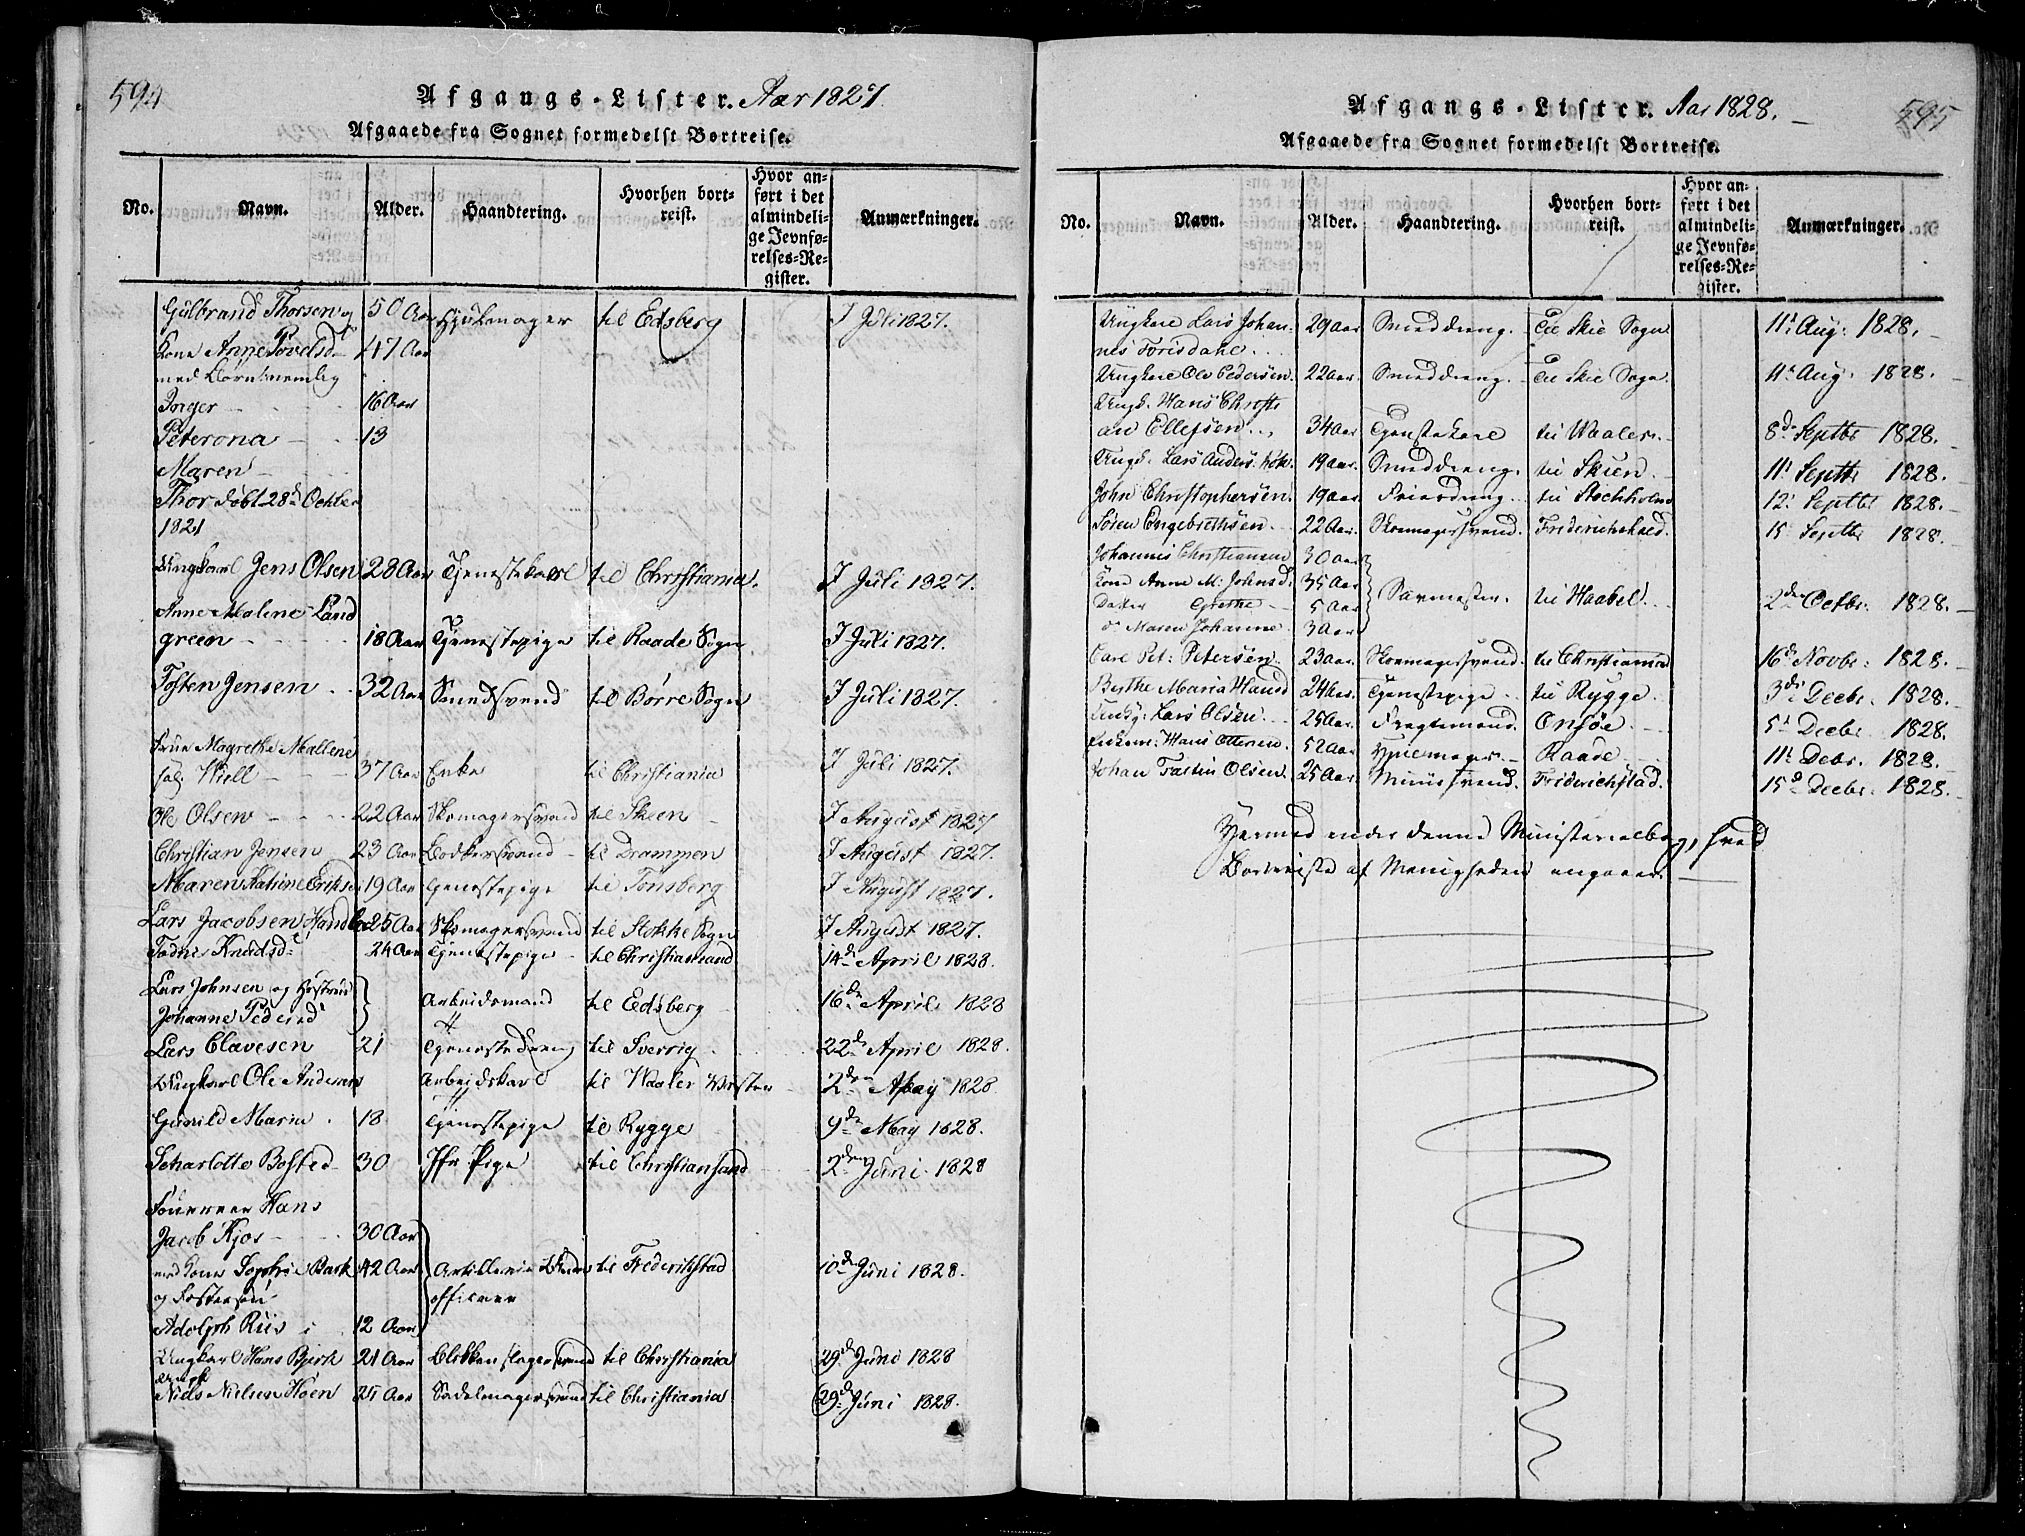 594
Afgangs-Lister. Aar 1827.
Afgaaede fra Sognet formedelst Bortreise.
No. Navn. Alder. Haandtering. Hvorhen bortreist. Hvor anført i det almindelige Jevnførelses-Register. Anmærkninger.
Gulbrand Thorsen og 50 Aar Hjulmager til Edsberg 7 Juli 1827.
Kone Anne Povelsd 47 Aar
med Børn nemlig
Inger 16 Aar
Peterona 13
Maren
Thor døbt 28d Octbr
1821
Ungkarl Jens Olsen 28 Aar Tjenestekarl til Christiania. 7 Juli 1827.
Anne Malene Land
green 18 Aar Tjenestepige til Raade Sogn 7 Juli 1827.
Tosten Jensen 32 Aar Smedsvend til Børre Sogn 7 Juli 1827.
Frue Magrethe Mallene
sal Wiell 37 Aar Enke til Christiania 7 Juli 1827.
Ole Olsen 22 Aar Skomagersvend til Skeen 7 August 1827
Christian Jensen 23 Aar Bødkersvend til Drammen 7 August 1827.
Maren Katrine Eriks 19 Aar Tjenestepige til Tønsberg 7 August 1827.
Lars Jacobsen 25 Aar Skomagersvend til Stokke Sogn 7 August 1827.
Knudsd 24 Aar Tjenestepige til Christiansand 14de April 1828.
Lars Johnsen og Hustrue
Johanne Pedersd Arbeidsmand til Edsberg 16de April 1828
Lars Clavesen 21 Tjenestedreng til Sverrig 22de April 1828.
Ungkarl Ole Anders Arbeidskarl til Waaler 2den May 1828
Gunild Marie 18 Tjenestepige til Rygge 9de May 1828.
Scharlotte Bosted 30 Jfr Pige til Christiansand 2den Juni 1828
Hans
Jacob Kjos 30 Aar
med Kone Sophie Bark 42 Aar Artilleri Under til Frederikstad 10de Juni 1828.
og Fostersøn officeer
Adolph Riis 12 Aar
Ungkarl Hans Bjerk 21 Aar Blikkenslagersvend til Christiania 29d Juni 1828
Ungk
Niels Nielsen Høen 21 Aar Sadelmagersvend til Christiania 29d Juni 1828.
595
Afgangs-Lister. Aar 1828.
Afgaaede fra Sognet formedelst Bortreise.
No. Navn. Alder. Haandtering. Hvorhen bortreist. Hvor anført i det almindelige Jevnførelses-Register. Anmærkninger.
Ungkarl Lars Johan- 29 Aar Smeddreng. Til Skie Sogn 11t Aug: 1828.
nes Torisdahl.
Ungkarl Ole Pedersen. 22 Aar. Smeddreng. Til Skie Sogn. 11t Aug: 1828.
Ungk. Hans Christi
an Ellefsen. 34 Aar Tjenstekarl til Waaler. 8de Septbr 1828.
Ungk. Lars Anders. 19 Aar. Smeddreng. til Skien. 11t Septbr 1828.
John Christophersen. 19 Aar til Stockholm 12t Septbr 1828.
Søren Engebrethsen. 22 Aar. Skomagersvend. Friderichshald. 15 Septbr 1828.
Johannes Christiansen 30 Aar
Kone Anne M: Johnsd. 35 Aar
Datter Grethe 5 Aar Savmester. til Haabel. 2den Octbr. 1828.
do Maren Johanne 3 Aar
Carl Pet: Petersen. 23 Aar. Skomagersvend. til Christiania 16de Novbr: 1828.
Berthe Maria Hansd 24 Aar. Tjenestepige til Rygge. 3de Decbr. 1828.
Ungk: Lars Olsen 25 Aar. Fragtemand. Onsøe. 5t Decbr. 1828.
Hans Ottersen. 52 Aar Raade. 11t Debr. 1828.
Johan Tostin Olsen. 25 Aar Muursvend. Friderichstad. 15d Decbr. 1828.
Hermed endes denne Ministerialbog, hvad
Bortreiste af Menigheden angaaer.